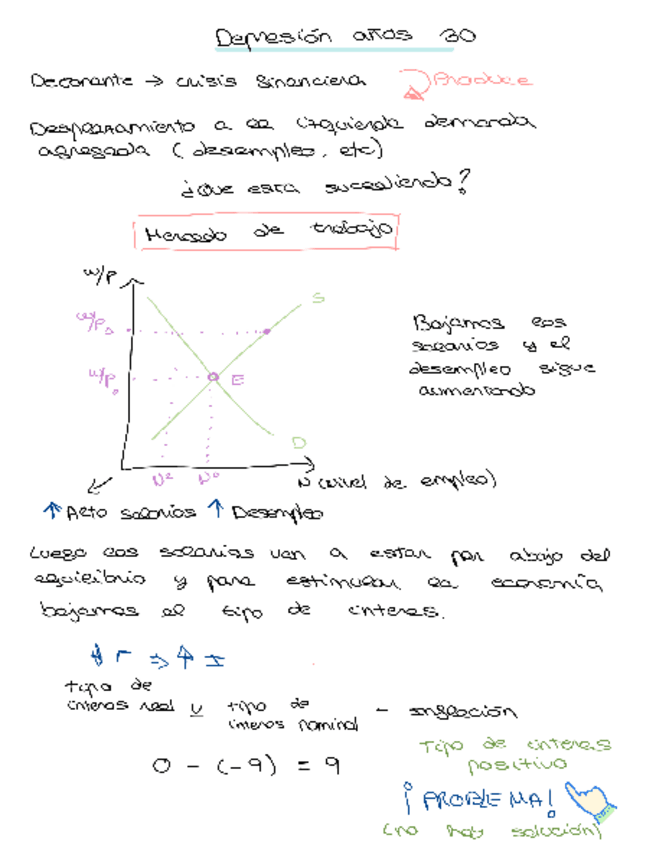 Depresión años 30
Deconante → crisis financiera Produce
Desplazamiento a la izquierda demanda
agregada (desempleo, etc)
¿Que esta sucediendo?
Mercado de trabajo
w/p
S
w/p₂
Bajamos los
salarios y el
desempleo sigue
aumentando
w/p₀
E
D
N² N⁰
N (nivel de empleo)
↑ Alto salarios ↑ Desempleo
Luego los salarios van a estar por abajo del
equilibrio y para estimular la economía
bajamos el tipo de interes.
↓ r ⇒ ↑ I
tipo de
interes real = tipo de
interes nominal - inflación
0 - (-9) = 9
Tipo de interes
positivo
¡PROBLEMA!
(no hay solución)